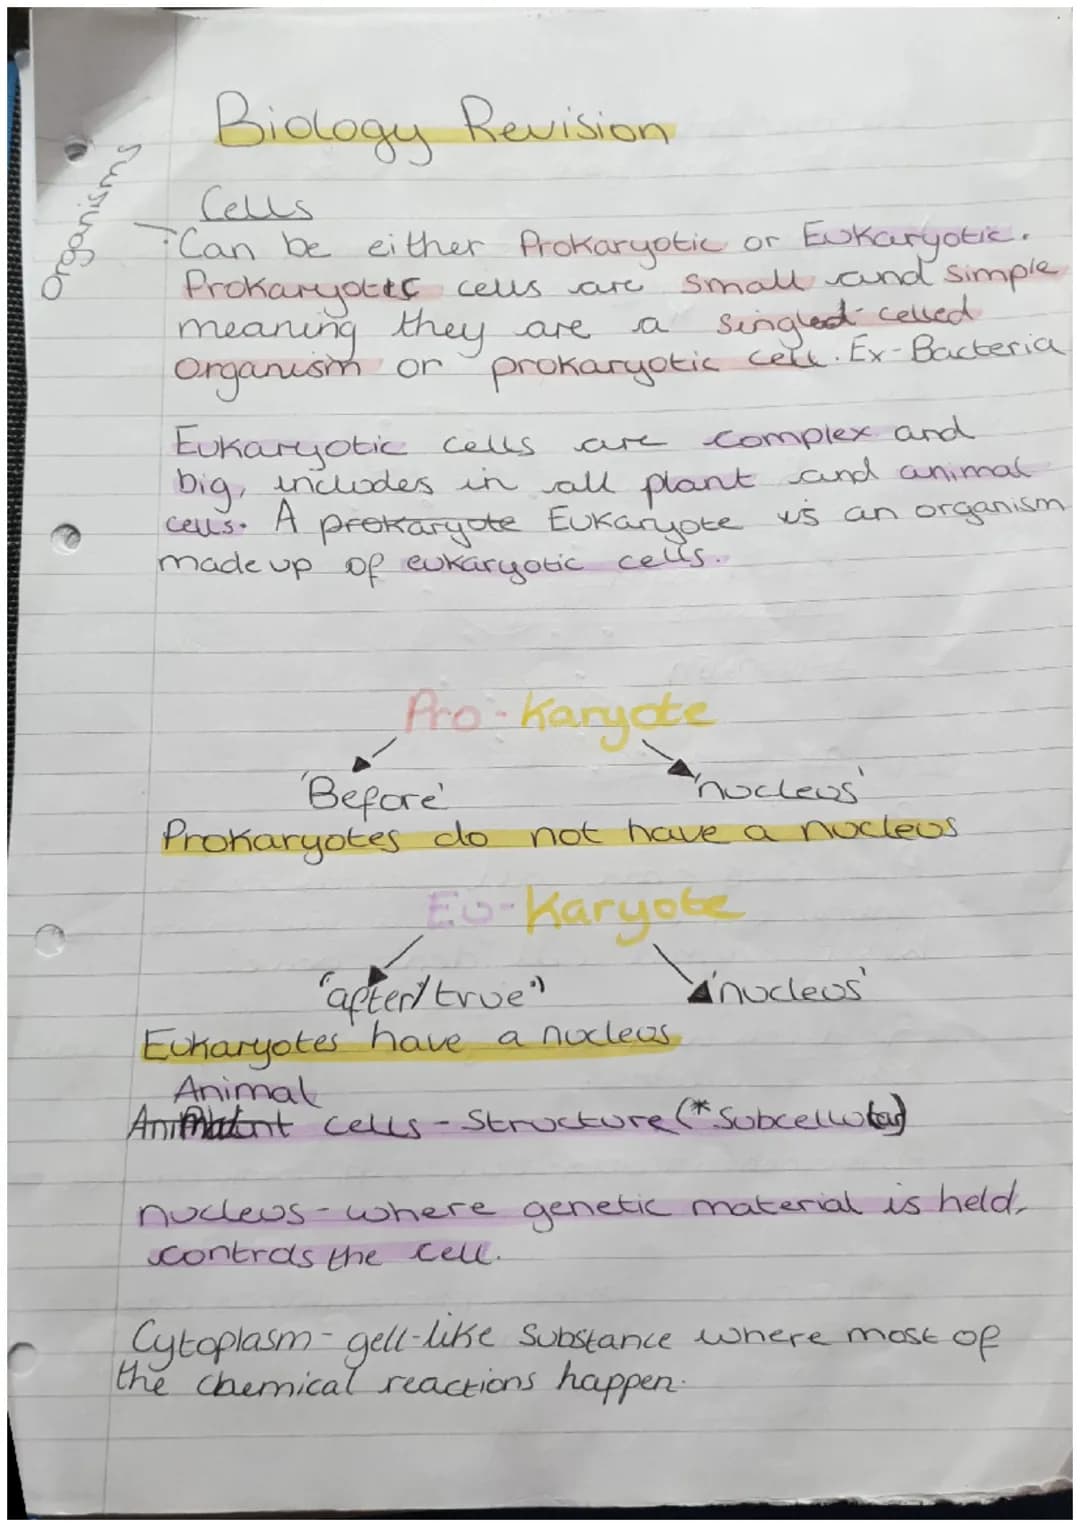 Biology Revision
Organisms
Cells
Can be either Prokaryotic or Eukaryotic.
Prokaryotic cells are small and simple
meaning they are a singled-celled
organism or prokaryotic cell. Ex-Bacteria
Eukaryotic cells are complex and
big, includes in all plant and animal
cells. A prokaryote Eukaryote is an organism
made up of eukaryotic cells.
Pro-Karyote
'Before' 'nucleus'
Prokaryotes do not have a nucleus
Eu-Karyote
"after/true" 'nucleus'
Eukaryotes have a nucleus
Animal
cells - Structure (*Subcellular)
nucleus - where genetic material is held,
controls the cell.
Cytoplasm - gell-like substance where most of
the chemical reactions happen.